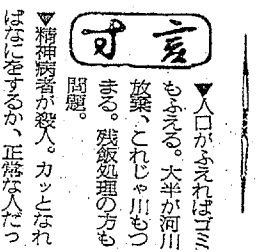 寸言
▼人口がふえればゴミ
もふえる。大半が河川
放棄、これじゃ川もつ
まる。残飯処理の方も
問題。
▼精神病者が殺人。カッとなれ
ばなにをするか、正常な人だっ